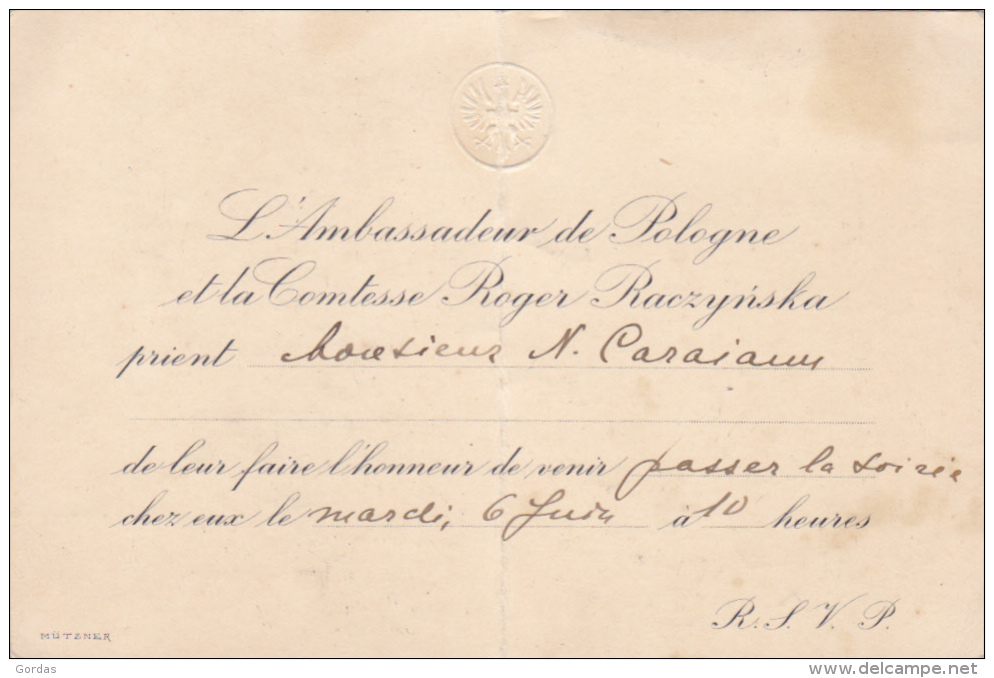 L'Ambassadeur de Pologne
et la Comtesse Roger Raczyńska
prient Monsieur N. Caraianu
de leur faire l'honneur de venir passer la soirée
chez eux le mardi, 6 Juin à 10 heures
R. S. V. P.
MÜTZNER
Gordas
delcampe.net